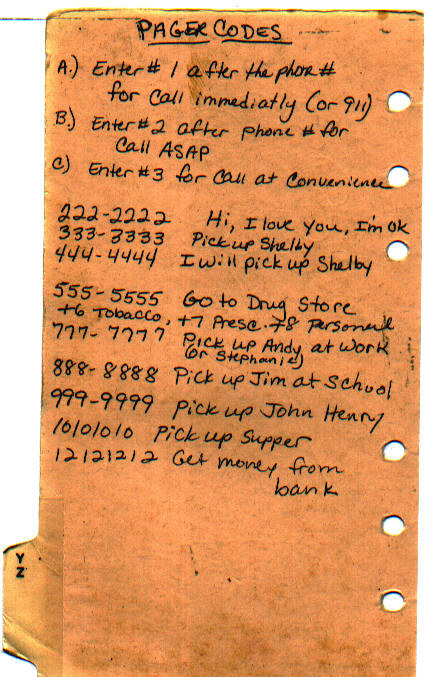 PAGER CODES
A.) Enter # 1 after the phone #
for call immediatly (or 911)
B.) Enter # 2 after phone # for
Call ASAP
C) Enter #3 for call at convenience
222-2222 Hi, I love you, I'm OK
333-3333 Pick up Shelby
444-4444 I will pick up Shelby
555-5555 Go to Drug Store
+6 Tobacco, +7 Presc. +8 Personal
777-7777 Pick up Andy at work
(or Stephanie)
888-8888 Pick up Jim at School
999-9999 Pick up John Henry
10101010 Pick up Supper
12121212 Get money from
bank
Y
Z